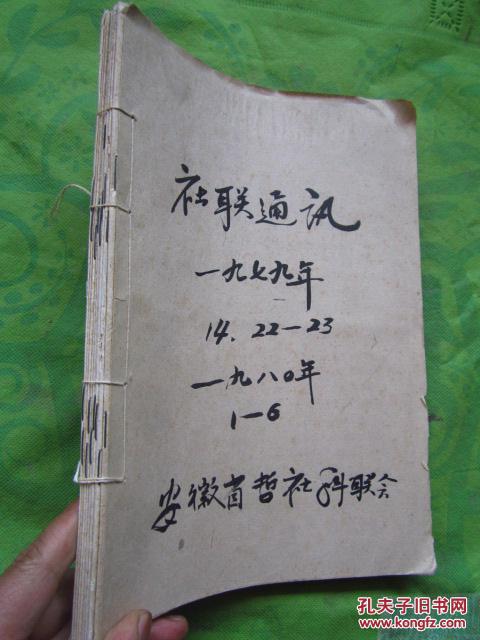 社联通讯
一九七九年
14. 22—23
一九八〇年
1—6
安徽省哲社科联会
孔夫子旧书网
www.kongfz.com